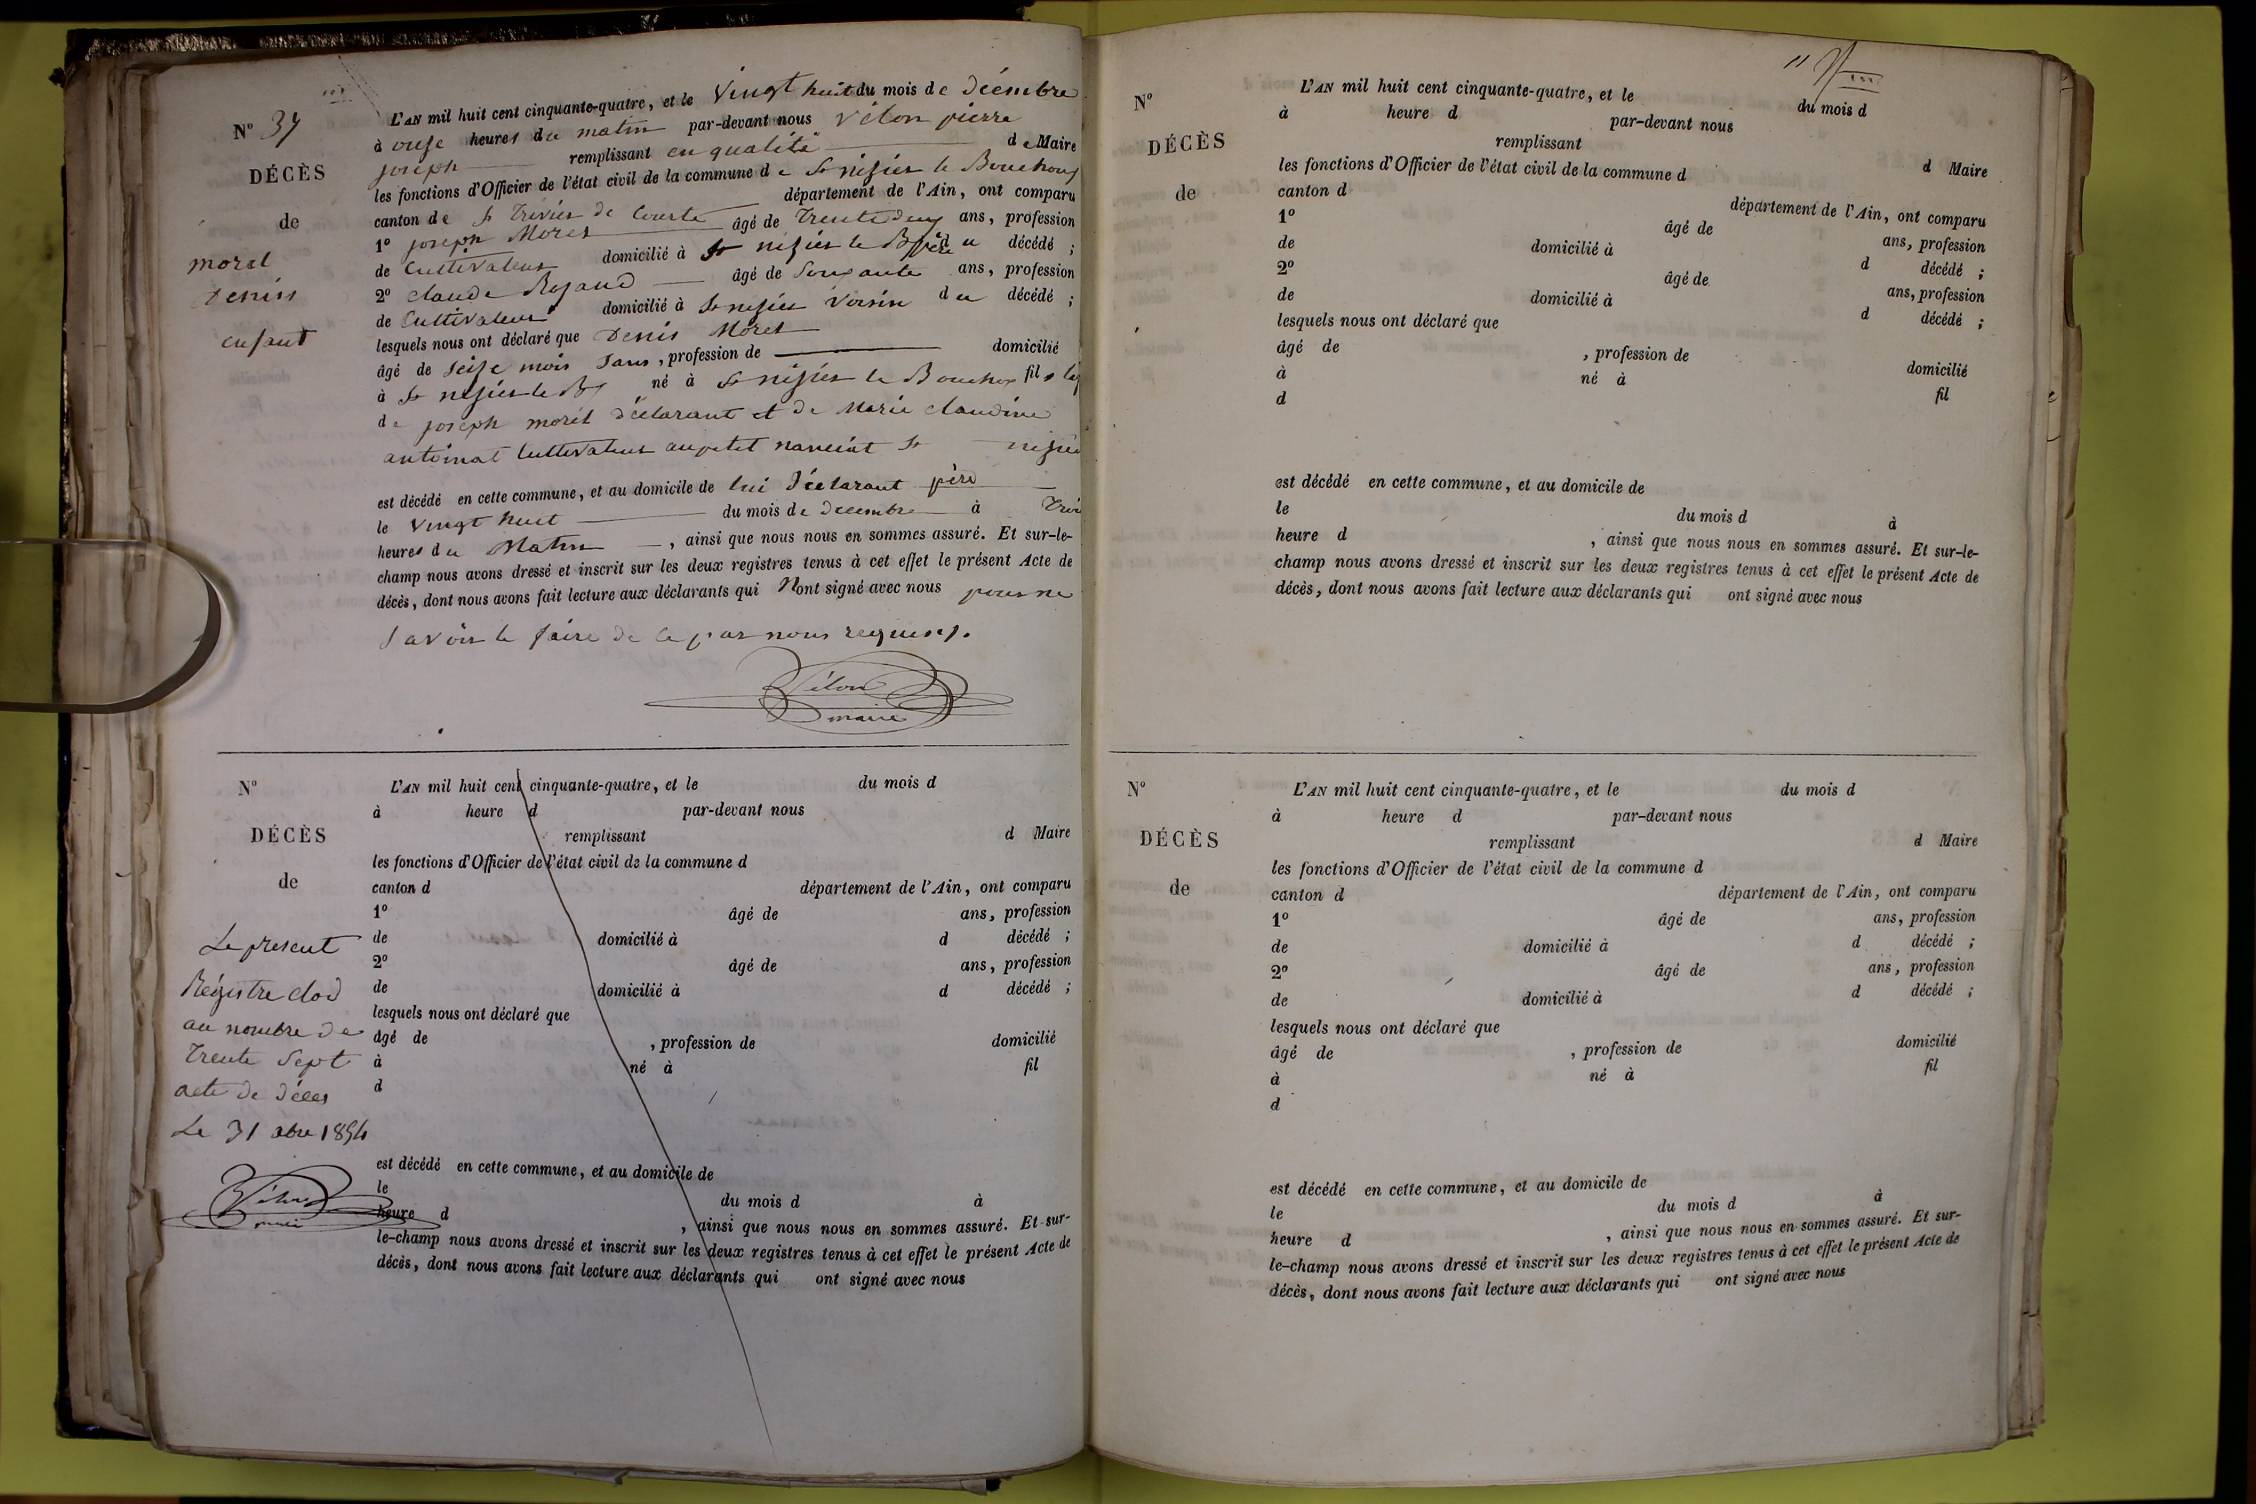 Nº 37
DÉCÈS
de
morel
Denis
enfant
L'AN mil huit cent cinquante-quatre, et le Vingt huit du mois de décembre
à onze heures du matin par-devant nous vélon pierre
joseph remplissant en qualité de Maire
les fonctions d'Officier de l'état civil de la commune de St nizier le Bouchoux
canton de St Trivier de Courte département de l'Ain, ont comparu
1º joseph Morel âgé de Trente deux ans, profession
de Cultivateur domicilié à St nizier le B père du décédé ;
2º claude Rozand âgé de Soixante ans, profession
de Cultivateur domicilié à St nizier Voisin du décédé ;
lesquels nous ont déclaré que Denis Morel
âgé de Seize mois sans, profession de domicilié
à St nizier le Bx né à St nizier le Bouchoux fils lég
de joseph morel déclarant et de Marie claudine
antoinat Cultivateur au petit nanciat St nizier
est décédé en cette commune, et au domicile de lui déclarant père
le Vingt huit du mois de décembre à Troi
heures du Matin, ainsi que nous nous en sommes assuré. Et sur-le-
champ nous avons dressé et inscrit sur les deux registres tenus à cet effet le présent Acte de
décès, dont nous avons fait lecture aux déclarants qui N'ont signé avec nous pour ne
Savoir le faire de ce par nous requis.
Vélon
maire
Nº
DÉCÈS
de
Le present
Régistre clod
au nombre de
Trente Sept
acte de décès
Le 31 xbre 1854
Vélon
maire
L'AN mil huit cent cinquante-quatre, et le du mois d
à heure d par-devant nous
remplissant d Maire
les fonctions d'Officier de l'état civil de la commune d
canton d département de l'Ain, ont comparu
1º âgé de ans, profession
de domicilié à d décédé ;
2º âgé de ans, profession
de domicilié à d décédé ;
lesquels nous ont déclaré que
âgé de , profession de domicilié
à né à fil
d
est décédé en cette commune, et au domicile de
le du mois d à
heure d , ainsi que nous nous en sommes assuré. Et sur-
le-champ nous avons dressé et inscrit sur les deux registres tenus à cet effet le présent Acte de
décès, dont nous avons fait lecture aux déclarants qui ont signé avec nous
Nº
DÉCÈS
de
L'AN mil huit cent cinquante-quatre, et le du mois d
à heure d par-devant nous
remplissant d Maire
les fonctions d'Officier de l'état civil de la commune d
canton d département de l'Ain, ont comparu
1º âgé de ans, profession
de domicilié à d décédé ;
2º âgé de ans, profession
de domicilié à d décédé ;
lesquels nous ont déclaré que
âgé de , profession de domicilié
à né à fil
d
est décédé en cette commune, et au domicile de
le du mois d à
heure d , ainsi que nous nous en sommes assuré. Et sur-le-
champ nous avons dressé et inscrit sur les deux registres tenus à cet effet le présent Acte de
décès, dont nous avons fait lecture aux déclarants qui ont signé avec nous
Nº
DÉCÈS
de
L'AN mil huit cent cinquante-quatre, et le du mois d
à heure d par-devant nous
remplissant d Maire
les fonctions d'Officier de l'état civil de la commune d
canton d département de l'Ain, ont comparu
1º âgé de ans, profession
de domicilié à d décédé ;
2º âgé de ans, profession
de domicilié à d décédé ;
lesquels nous ont déclaré que
âgé de , profession de domicilié
à né à fil
d
est décédé en cette commune, et au domicile de
le du mois d à
heure d , ainsi que nous nous en sommes assuré. Et sur-
le-champ nous avons dressé et inscrit sur les deux registres tenus à cet effet le présent Acte de
décès, dont nous avons fait lecture aux déclarants qui ont signé avec nous